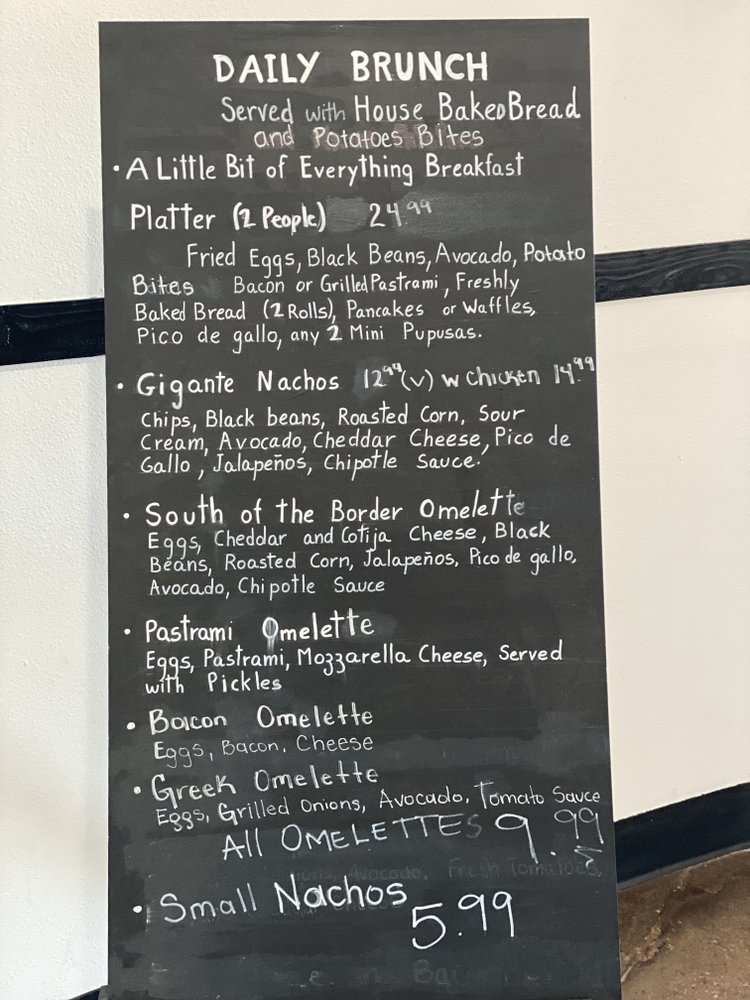 DAILY BRUNCH
Served with House Baked Bread
and Potatoes Bites
• A Little Bit of Everything Breakfast
Platter (2 People) 24.99
Fried Eggs, Black Beans, Avocado, Potato
Bites Bacon or Grilled Pastrami, Freshly
Baked Bread (2 Rolls), Pancakes or Waffles,
Pico de gallo, any 2 Mini Pupusas.
• Gigante Nachos 12.99 (v) w chicken 14.99
Chips, Black beans, Roasted Corn, Sour
Cream, Avocado, Cheddar Cheese, Pico de
Gallo, Jalapeños, Chipotle Sauce.
• South of the Border Omelette
Eggs, Cheddar and Cotija Cheese, Black
Beans, Roasted Corn, Jalapeños, Pico de gallo,
Avocado, Chipotle Sauce
• Pastrami Omelette
Eggs, Pastrami, Mozzarella Cheese, Served
with Pickles
• Bacon Omelette
Eggs, Bacon, Cheese
• Greek Omelette
Eggs, Grilled Onions, Avocado, Tomato Sauce
All OMELETTES 9.99
Avocado, Fresh Tomatoes,
• Small Nachos
5.99